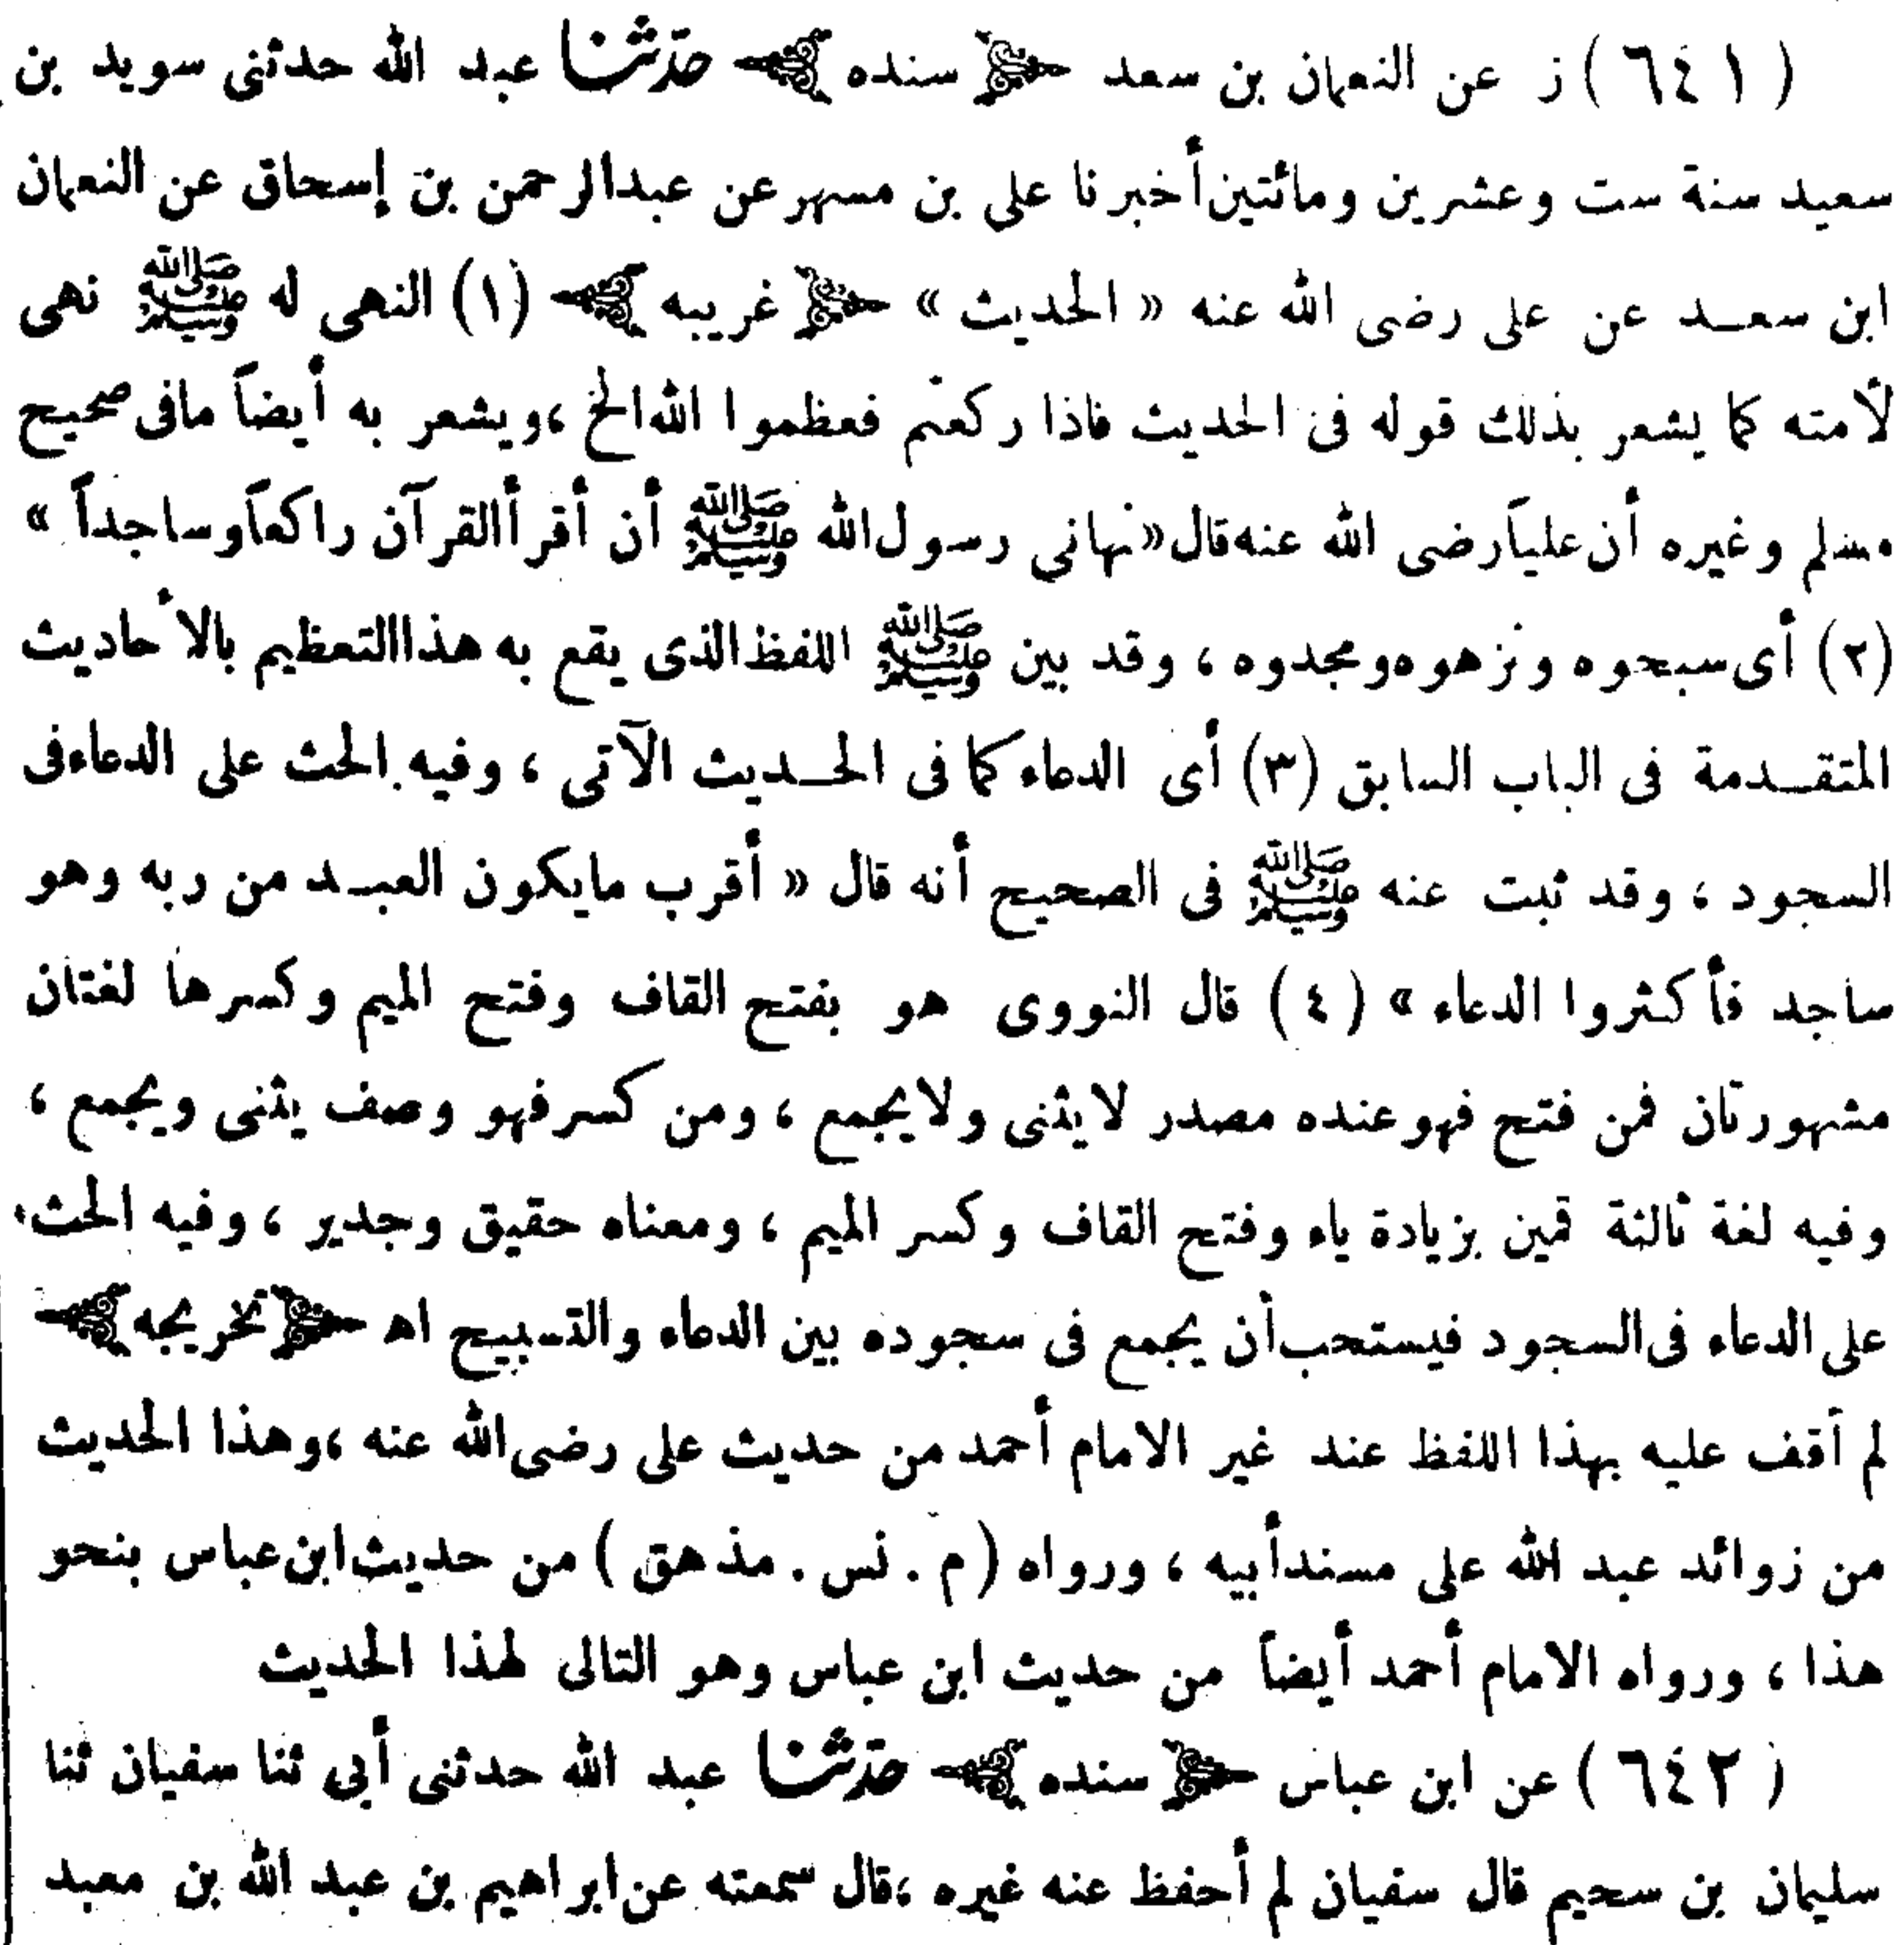 ( ٦٤١ ) ز عن النعمان بن سعد ﴿ سنده ﴾ حدثنا عبد الله حدثنى سويد بن
سعيد سنة ست وعشرين ومائتين أخبرنا على بن مسهر عن عبد الرحمن بن إسحاق عن النعمان
ابن سعد عن على رضى الله عنه « الحديث » ﴿ غريبه ﴾ (١) النهى له ﷺ نهى
لأمته كما يشعر بذلك قوله فى الحديث فاذا ركعتم فعظموا الله الخ ، ويشعر به أيضاً ما فى صحيح
مسلم وغيره أن علياً رضى الله عنه قال « نهانى رسول الله ﷺ أن أقرأ القرآن راكعاً وساجداً »
(٢) أى سبحوه ونزهوه ومجدوه ، وقد بين ﷺ اللفظ الذى يقع به هذا التعظيم بالأحاديث
المتقدمة فى الباب السابق (٣) أى الدعاء كما فى الحديث الآتى ، وفيه الحث على الدعاء فى
السجود ، وقد ثبت عنه ﷺ فى الصحيح أنه قال « أقرب ما يكون العبد من ربه وهو
ساجد فأكثروا الدعاء » (٤) قال النووى هو بفتح القاف وفتح الميم وكسرها لغتان
مشهورتان فمن فتح فهو عنده مصدر لا يثنى ولا يجمع ، ومن كسر فهو وصف يثنى ويجمع ،
وفيه لغة ثالثة قمين بزيادة ياء وفتح القاف وكسر الميم ، ومعناه حقيق وجدير ، وفيه الحث
على الدعاء فى السجود فيستحب أن يجمع فى سجوده بين الدعاء والتسبيح اهـ ﴿ تخريجه ﴾
لم أقف عليه بهذا اللفظ عند غير الامام أحمد من حديث على رضى الله عنه ، وهذا الحديث
من زوائد عبد الله على مسند أبيه ، ورواه ( م . نس . مذ هق ) من حديث ابن عباس بنحو
هذا ، ورواه الامام أحمد أيضاً من حديث ابن عباس وهو التالى لهذا الحديث
( ٦٤٢ ) عن ابن عباس ﴿ سنده ﴾ حدثنا عبد الله حدثنى أبى ثنا سفيان ثنا
سليمان بن سحيم قال سفيان لم أحفظ عنه غيره ، قال سمعته عن ابراهيم بن عبد الله بن معبد